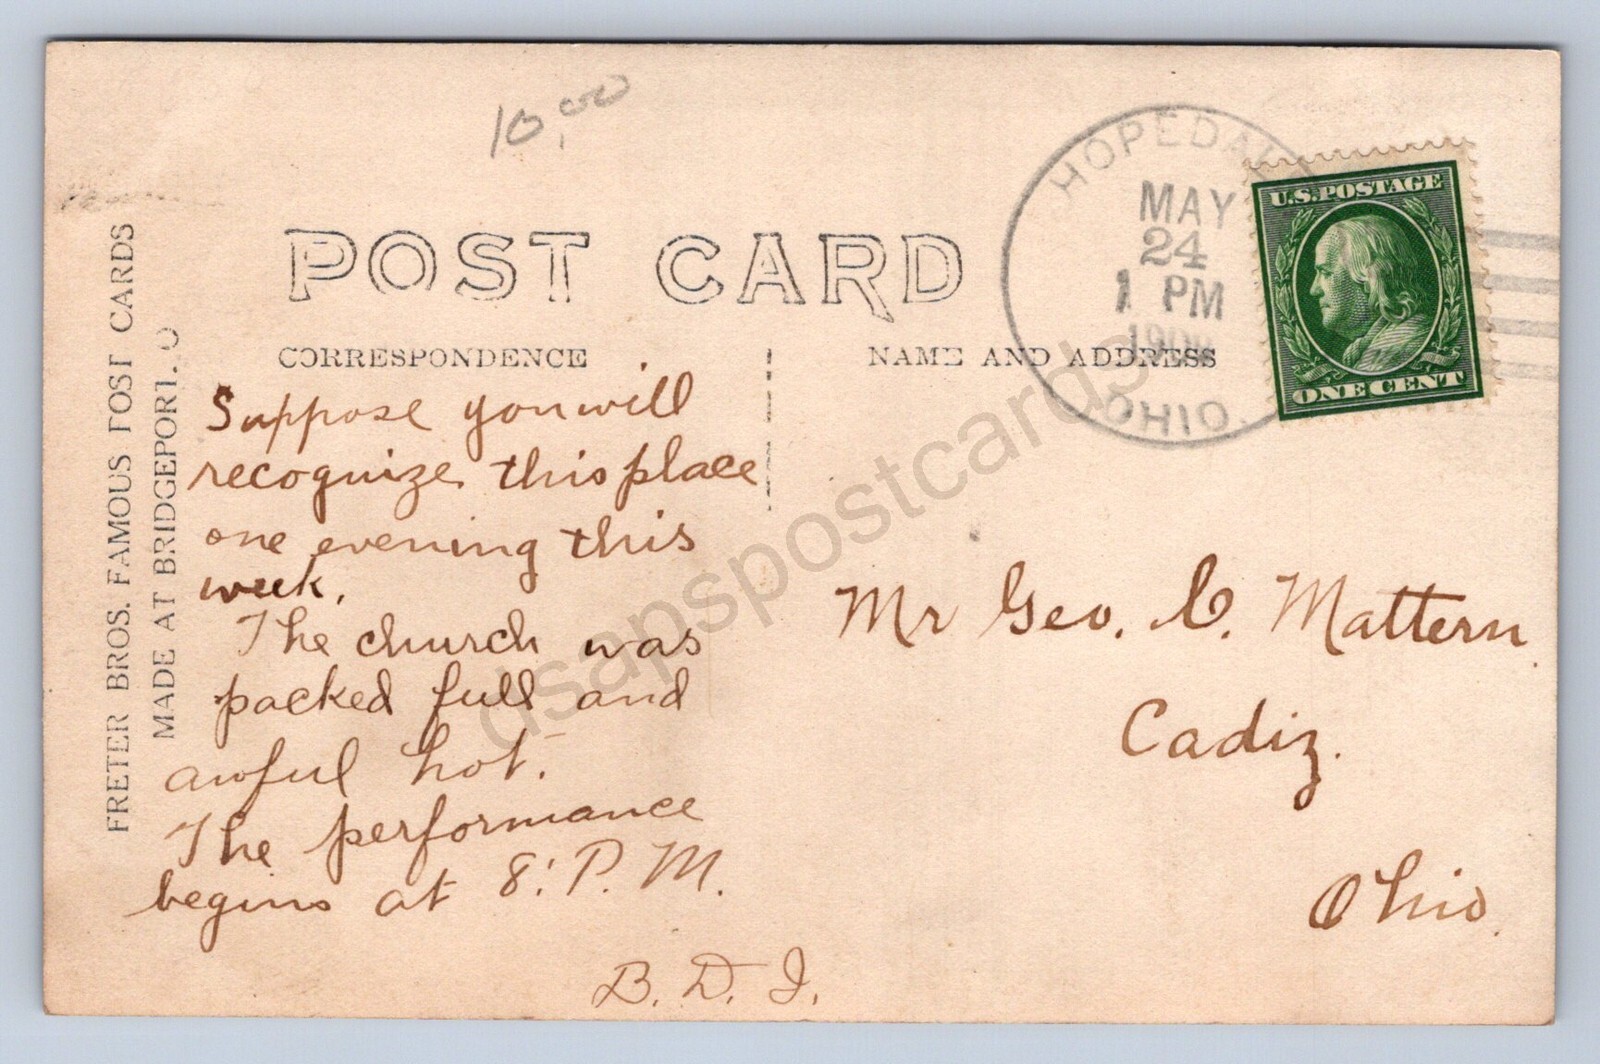 10.00
HOPEDALE
MAY
24
1 PM
OHIO.
U.S. POSTAGE
ONE CENT
POST CARD
CORRESPONDENCE
NAME AND ADDRESS
FRETER BROS. FAMOUS POST CARDS
MADE AT BRIDGEPORT. O
Suppose you will
recognize this place
one evening this
week.
The church was
packed full and
awful hot.
The performance
begins at 8: P. M.
B. D. J.
Mr Geo. C. Mattern
Cadiz.
Ohio.
dsapspostcards